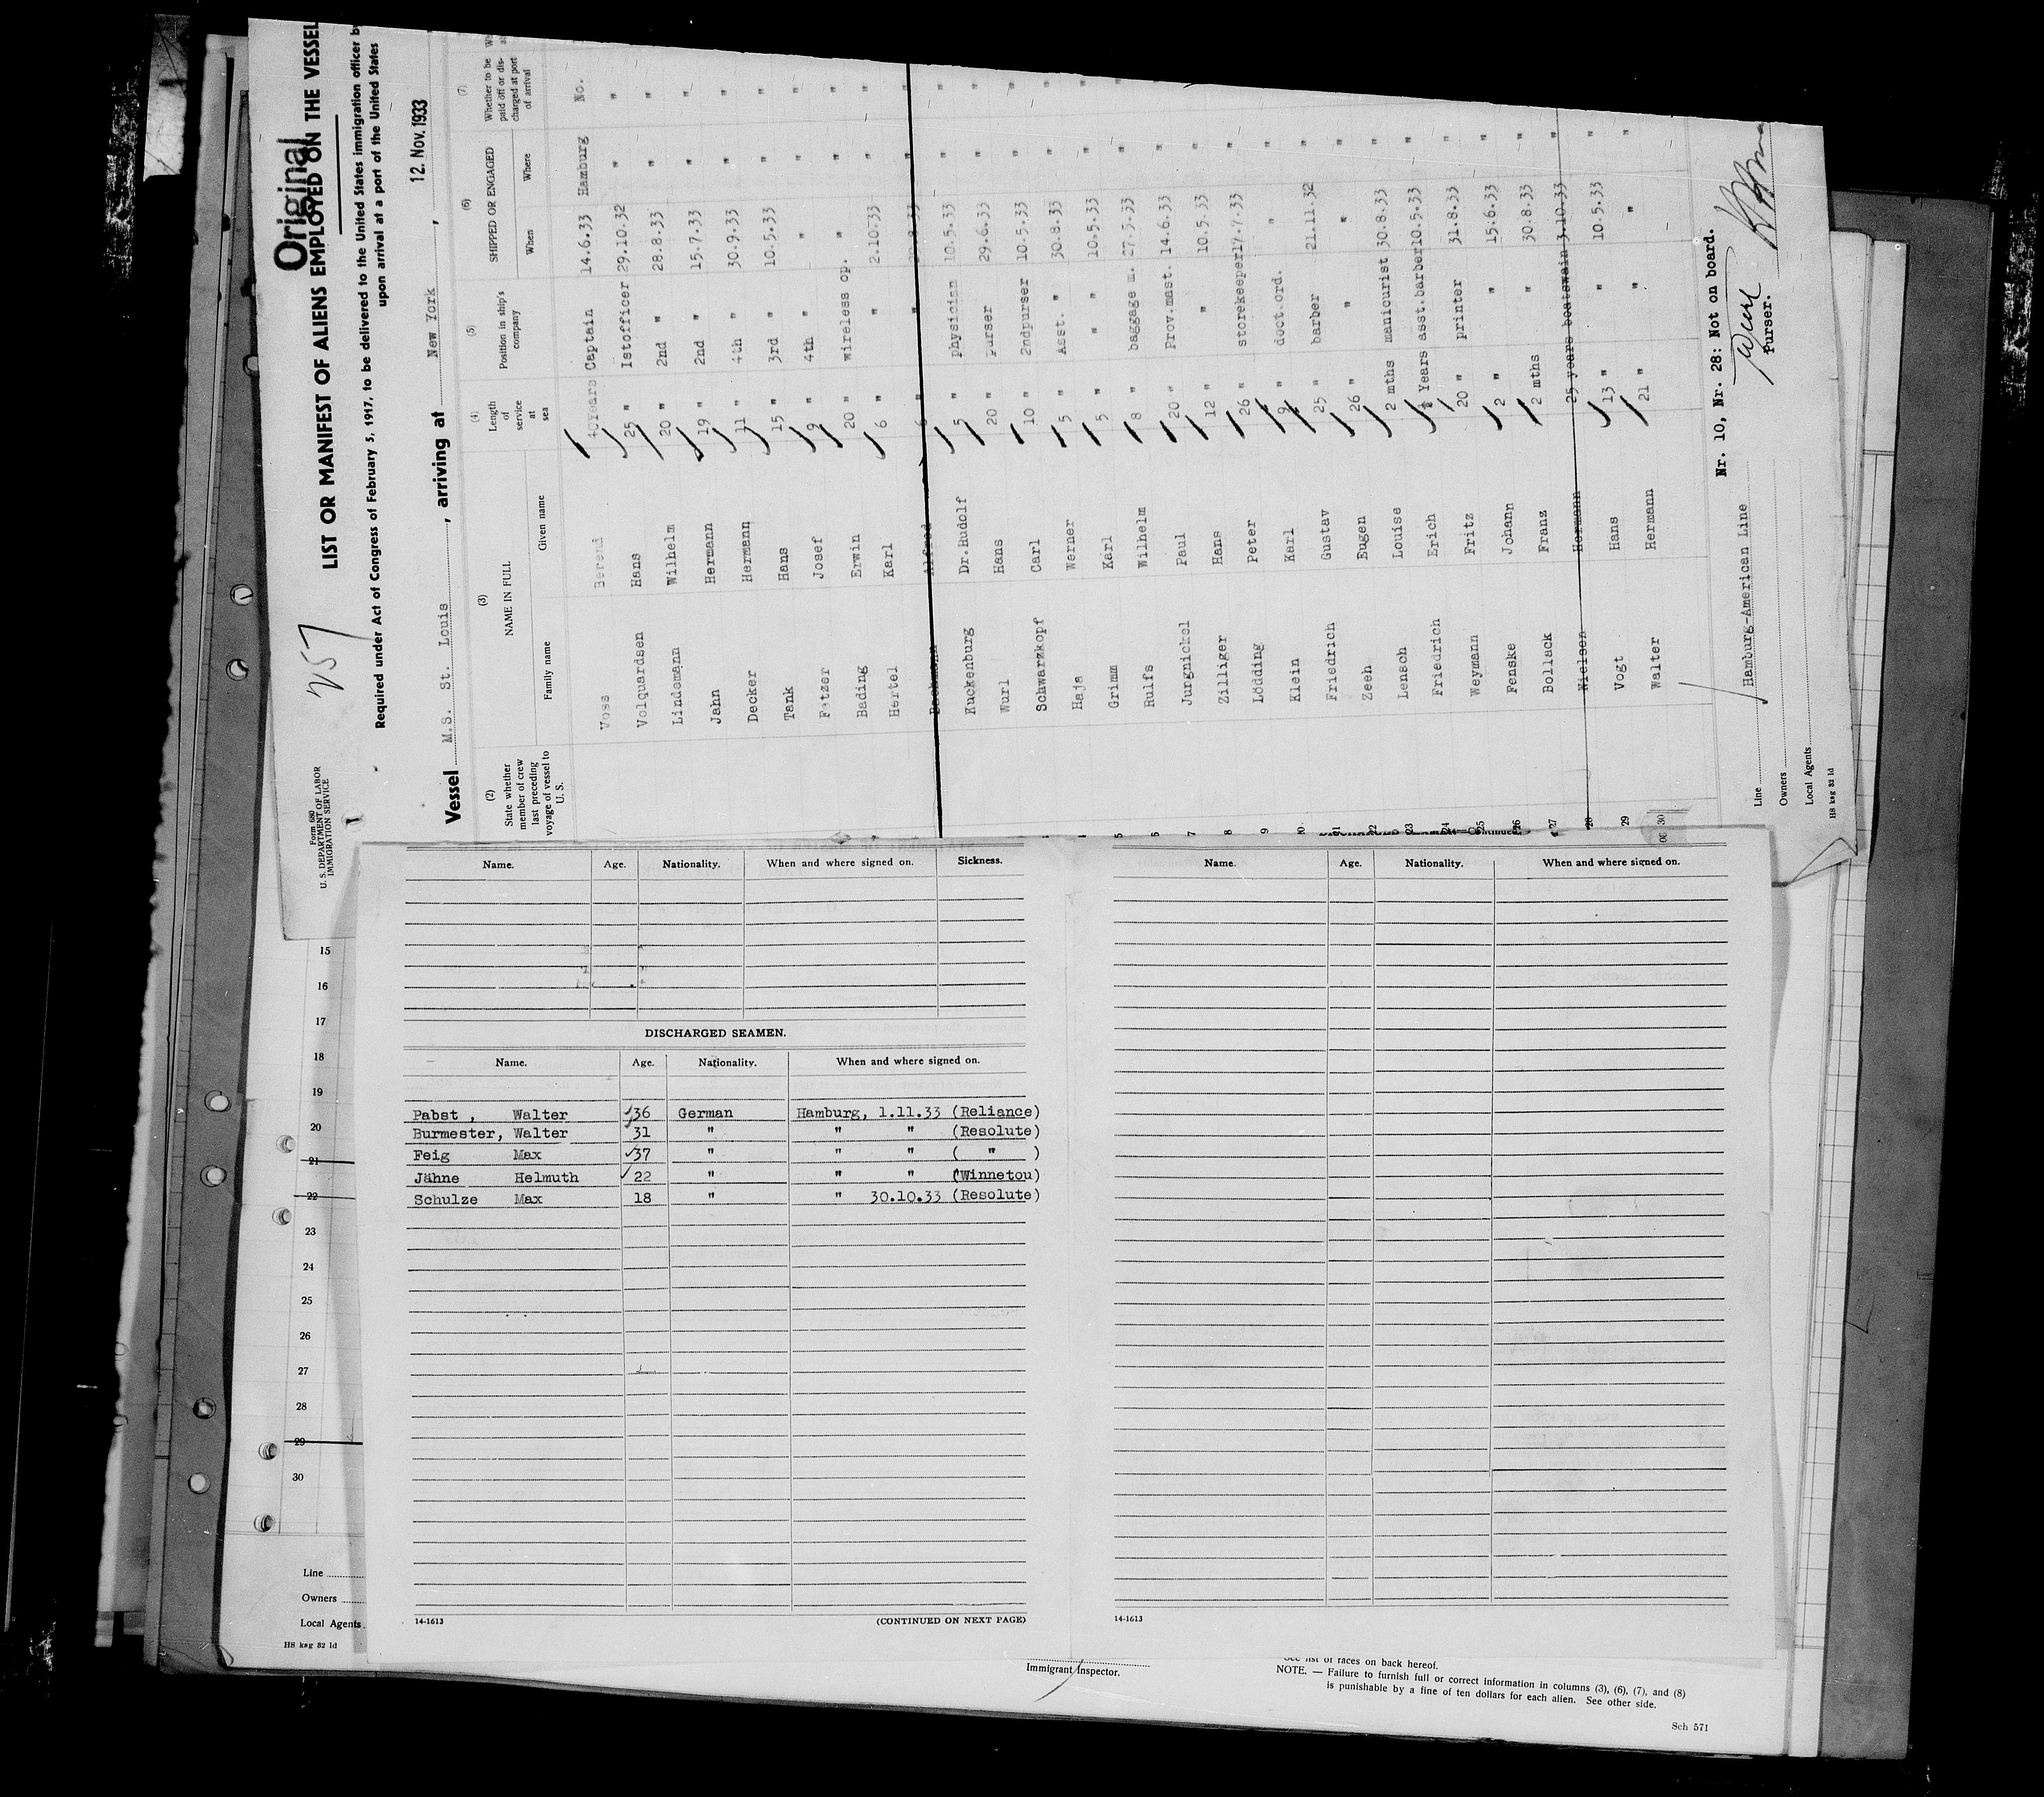 Original
LIST OR MANIFEST OF ALIENS EMPLOYED ON THE VESSEL
257
Form 680
U. S. DEPARTMENT OF LABOR
IMMIGRATION SERVICE
Required under Act of Congress of February 5, 1917, to be delivered to the United States immigration officer
upon arrival at a port of the United States
Vessel M.S. St. Louis , arriving at New York , 12. Nov. 1933
(2) (3) (4) (5) (6) (7)
State whether member of crew last preceding voyage of vessel to U. S. NAME IN FULL Family name Given name Length of service at sea Position in ship's company SHIPPED OR ENGAGED When Where Whether to be paid off or discharged at port of arrival
Voss Berend 40Years Captain 14.6.33 Hamburg No.
Volquardsen Hans 25 " Istofficer 29.10.32 " "
Lindemann Wilhelm 20 " 2nd " 28.8.33 " "
Jahn Hermann 19 " 2nd " 15.7.33 " "
Decker Hermann 11 " 4th " 30.9.33 " "
Tank Hans 15 " 3rd " 10.5.33 " "
Fetzer Josef 9 " 4th " " " "
Bading Erwin 20 " wireless op. " " "
Hertel Karl 6 " " 2.10.33 " "
Alfred 6 " " "
Kuckenburg Dr.Rudolf 5 " physician 10.5.33 " "
Wurl Hans 20 " purser 29.6.33 " "
Schwarzkopf Carl 10 " 2ndpurser 10.5.33 " "
Haja Werner 5 " Asst. " 30.8.33 " "
Grimm Karl 5 " " 10.5.33 " "
Rulfs Wilhelm 8 " baggage m. 27.5.33 " "
Jurgnickel Paul 20 " Prov.mast. 14.6.33 "
Zilliger Hans 12 " " 10.5.33 "
Lödding Peter 26 " storekeeper 17.7.33 "
Klein Karl 9 " doct.ord. " "
Friedrich Gustav 25 " barber 21.11.32 "
Zeeh Eugen 26 " " " "
Lensch Louise 2 mths manicurist 30.8.33 "
Friedrich Erich Years asst.barber 10.5.33 "
Weymann Fritz 20 " printer 31.8.33 "
Fenske Johann 2 " " 15.6.33 "
Bollack Franz 2 mths " 30.8.33 "
Nielsen Hermann 25 years boatswain 3.10.33 "
Vogt Hans 13 " " 10.5.33 "
Walter Hermann 21 " " " "
Nr. 10, Nr. 28: Not on board.
Line Hamburg-American Line
Purser.
Owners
Local Agents
H8 kag 32 1d
Name. Age. Nationality. When and where signed on. Sickness.
DISCHARGED SEAMEN.
Name. Age. Nationality. When and where signed on.
Pabst , Walter 36 German Hamburg, 1.11.33 (Reliance)
Burmester, Walter 31 " " " (Resolute)
Feig Max 37 " " " ( " )
Jähne Helmuth 22 " " " (Winnetou)
Schulze Max 18 " " 30.10.33 (Resolute)
14-1613 (CONTINUED ON NEXT PAGE)
Name. Age. Nationality. When and where signed on.
14-1613
15
16
17
18
19
20
21
22
23
24
25
26
27
28
29
30
Line
Owners
Local Agents
H8 kag 32 1d
Immigrant Inspector.
See list of races on back hereof.
NOTE. — Failure to furnish full or correct information in columns (3), (6), (7), and (8)
is punishable by a fine of ten dollars for each alien. See other side.
Sch 571